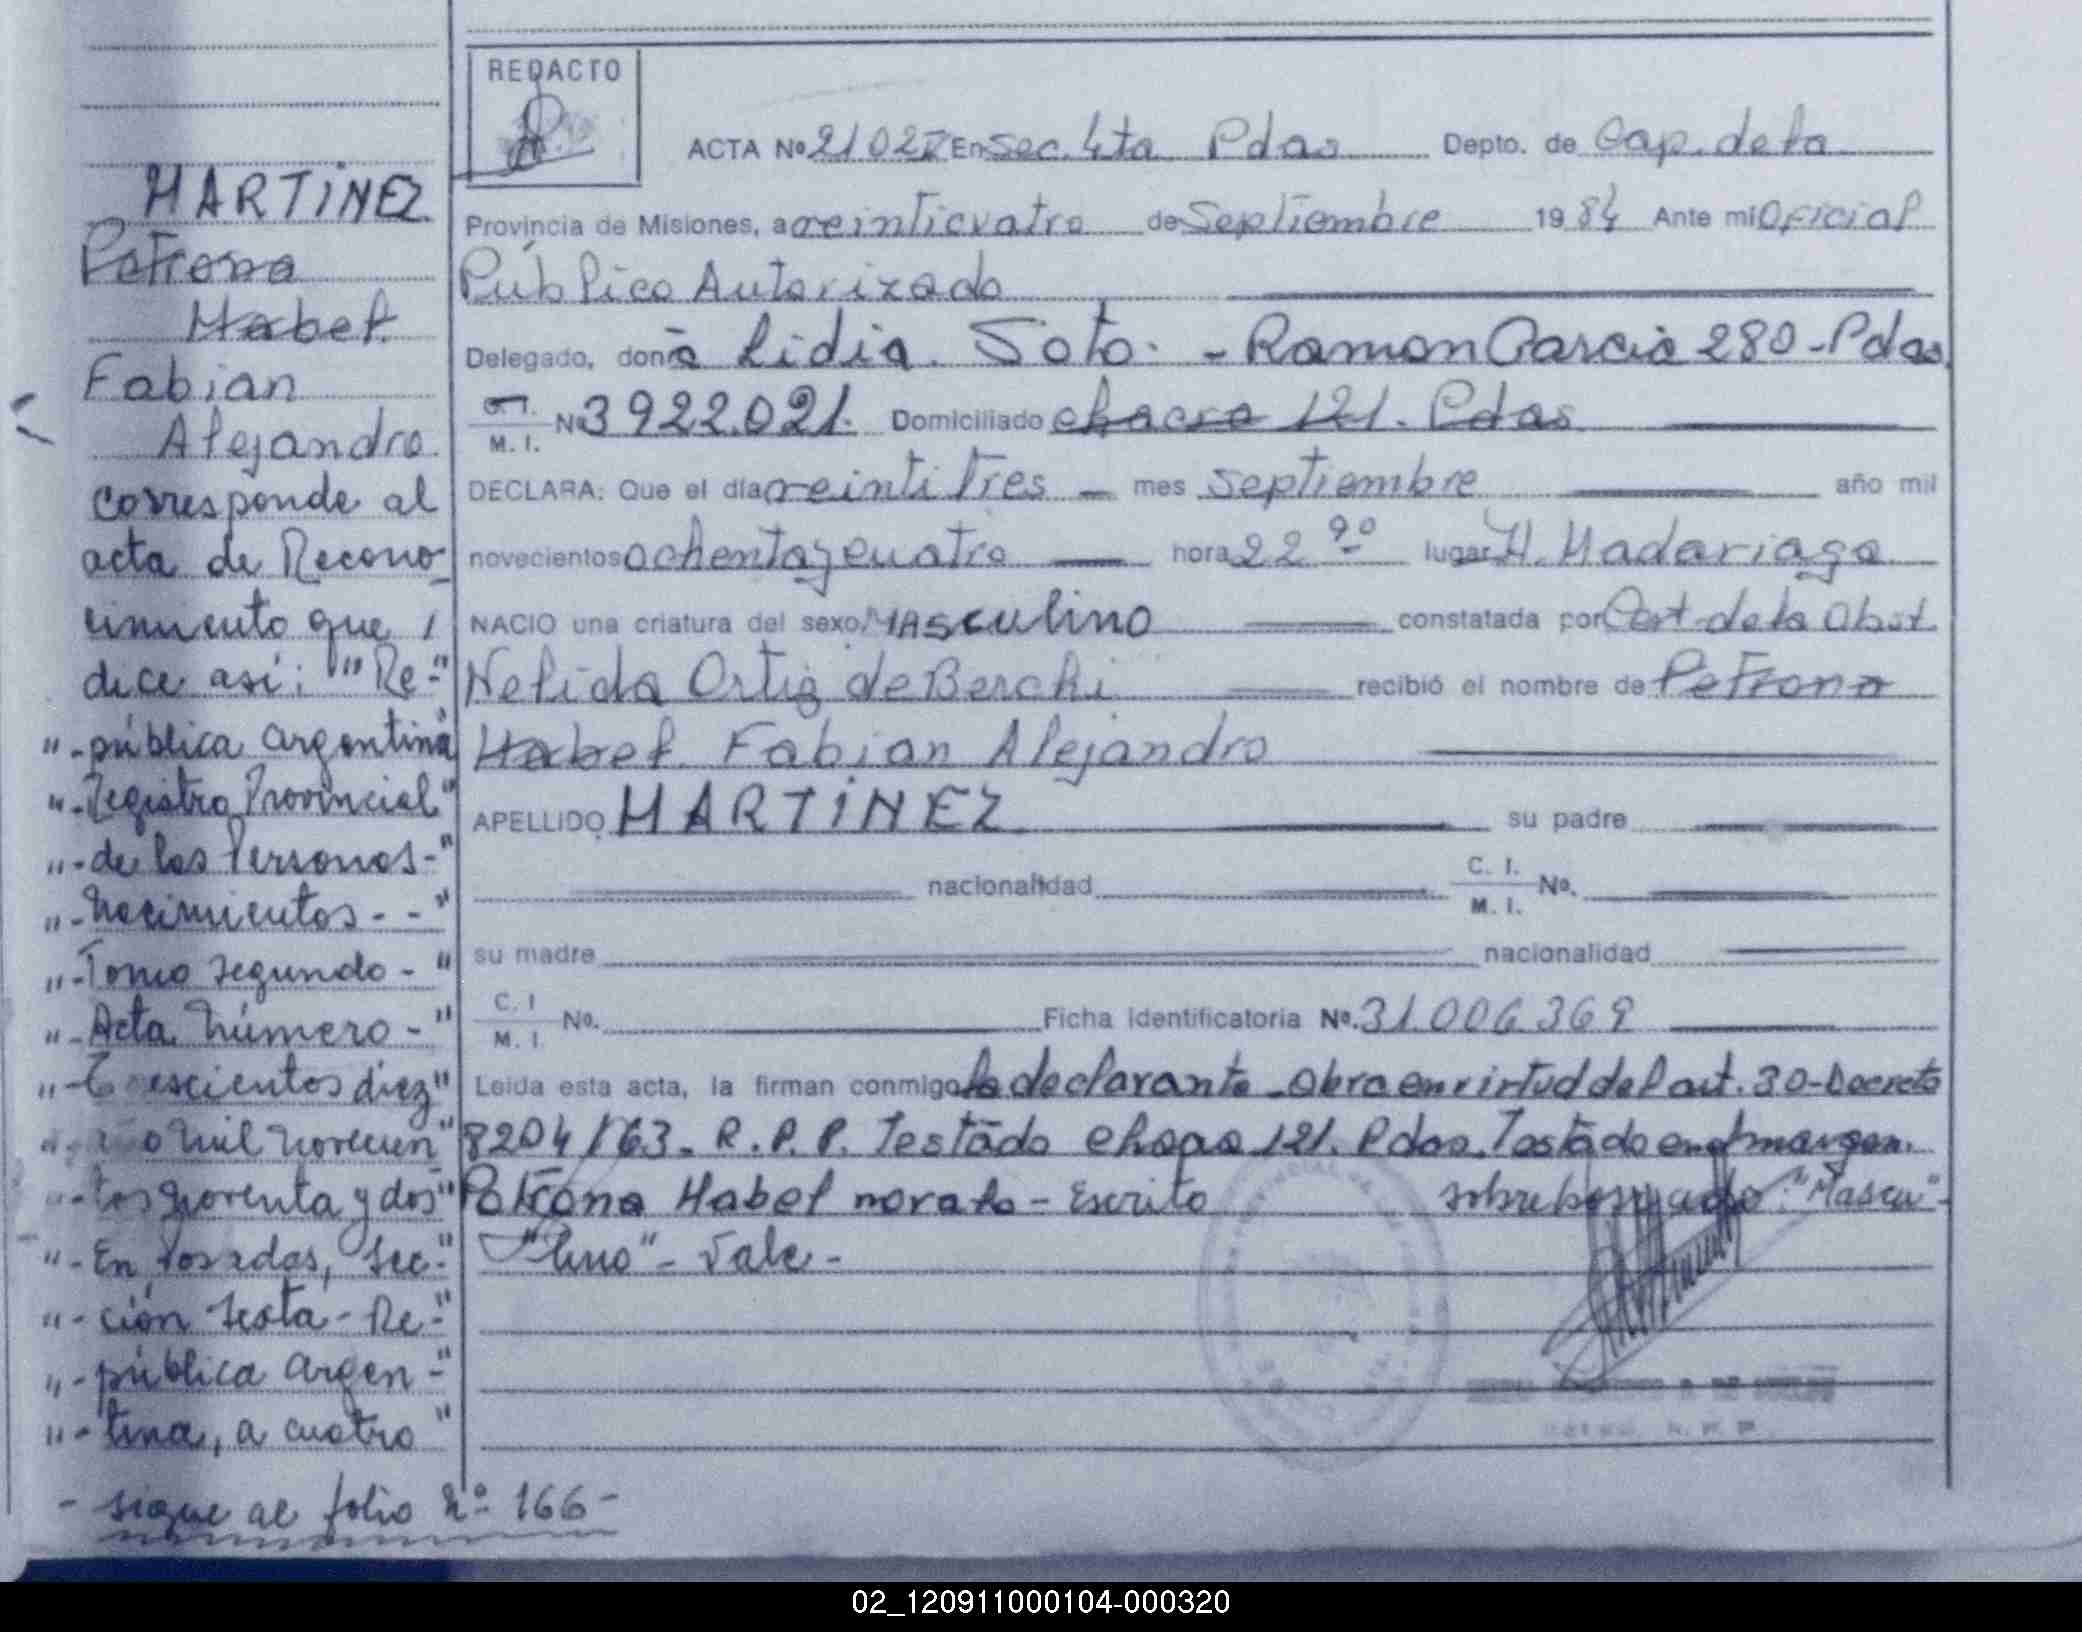 REDACTO
ACTA Nº 2102I En Sec. 4ta Pdas Depto. de Cap. de la
Provincia de Misiones, a veinticuatro de Septiembre 1984 Ante mi Oficial
Público Autorizado
Delegado, doña Lidia Soto. - Ramon Garcia 280 - Pdas
M. I. Nº 3922.021. Domiciliado chacra 121. Pdas
DECLARA: Que el día veinti Tres mes Septiembre año mil
novecientos ochenta y cuatro hora 22 90 lugar H. Madariaga
NACIO una criatura del sexo MAsculino constatada por Cert de la Obst.
Nelida Ortiz de Berchi recibió el nombre de Petrona
Mabel Fabian Alejandro
APELLIDO MARTiNEZ su padre
nacionalidad C. I. M. I. Nº.
su madre nacionalidad
C. I M. I. Nº. Ficha Identificatoria Nº. 31.006369
Leída esta acta, la firman conmigo la declarante - Obra en virtud del art. 30 - Decreto
8204/63. R. P. P. Testado 121. Pdas. Testado en el margen.
Petrona Mabel no vale - Escrito sobreborrado: "Mascu" -
"lino" - Vale -
MARTiNEZ
Petrona
Mabel
Fabian
Alejandro
corresponde al
acta de Recono
cimiento que /
dice así: "Re-"
"-pública argentina
"-Registro Provincial"
"-de las Personas-"
"-Nacimientos- -"
"-Tomo segundo -"
"-Acta Número -"
"-Trescientos diez"
Mil Novecien"
"-tos Noventa y dos"
"-En Posadas, Sec-"
"-ción Sexta - Re-"
"-pública argen-"
"-tina, a cuatro"
- sigue al folio Nº 166 -
02_120911000104-000320